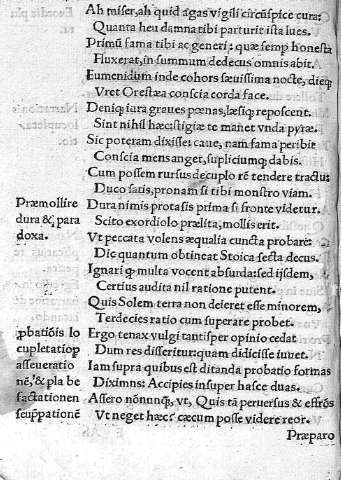 Ah miser, ah quid agas vigili circūspice cura:
Quanta heu damna tibi parturit ista lues.
Primū fama tibi ac generi: quæ semp honesta
Fluxerat, in summum dedecus omnis abit.
Eumenidum inde cohors sæuissima nocte, dieq;
Vret Orestæa conscia corda face.
Deniq; iura graues pœnas, læsiq; reposcent.
Sint nihil hæc: stigiæ te manet vnda pyræ.
Sic poteram dixisse: caue, nam fama peribit
Conscia mens anget, supliciumq; dabis.
Cum possem rursus decuplo rē tendere tractu:
Duco satis, pronam si tibi monstro viam.
Præmollire
Dura nimis protasis prima si fronte videtur.
dura &, para
Scito exordiolo prælita, mollis erit.
doxa.
Vt peccata volens æqualia cuncta probare:
Dic quantum obtineat Stoica secta decus.
Ignari q; multa vocent absurda: sed ijsdem,
Certius audita nil ratione putent.
Quis Solem terra non deieret esse minorem,
Terdecies ratio cum superare probet.
pbatiōis lo
Ergo tenax vulgi tantisper opinio cedat
cupletatio,
Dum res disseritur: quam didicisse iuuet.
asseueratio
Iam supra quibus est ditanda probatio formas
nē, & pla be
Diximus: Accipies insuper hasce duas.
factationem
Assero nōnunq;, vt, Quis tā peruersus & effrōs
seuppationē
Vt neget hæc? cæcum posse videre reor.
Præparo